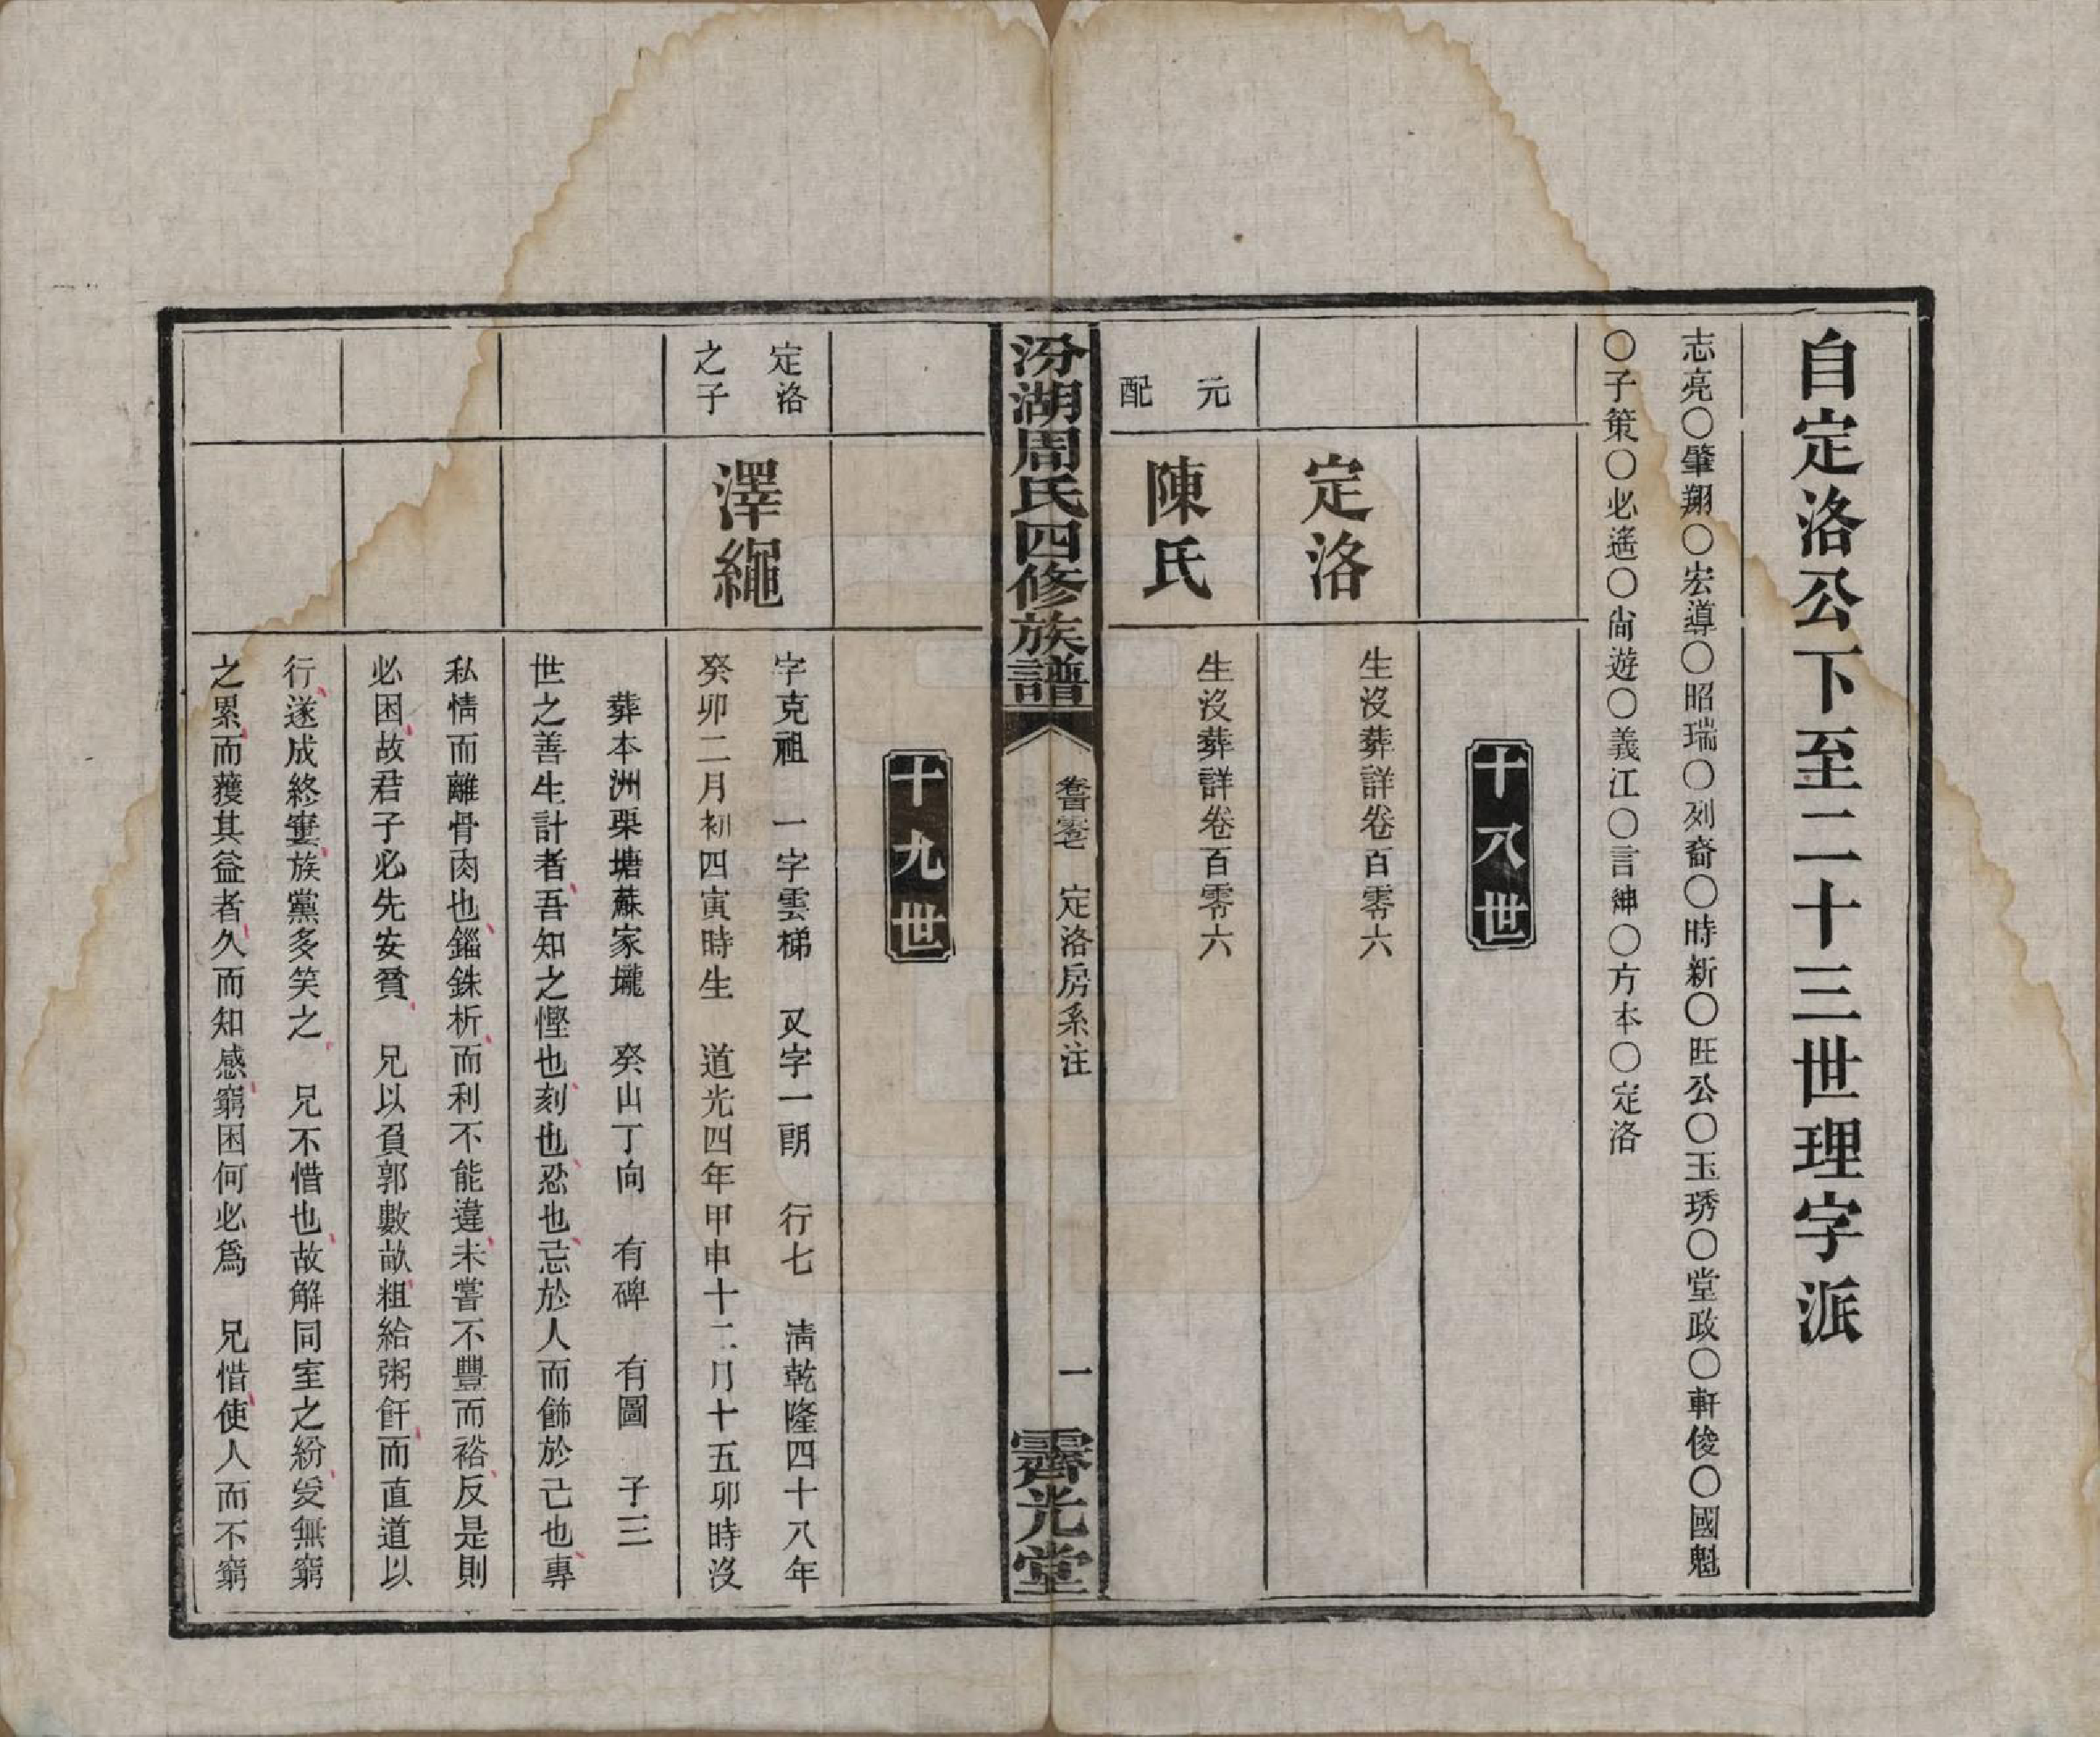 自定洛公下至二十三世理字派
志亮〇肇翔〇宏導〇昭瑞〇列裔〇時新〇旺公〇玉琇〇堂政〇軒俊〇國魁
〇子策〇必遙〇尙遊〇義江〇言紳〇方本〇定洛
十八世
定洛
生沒葬詳卷百零六
元
配
陳氏
生沒葬詳卷百零六
汾湖周氏四修族譜
定洛房系注
一
霽光堂
十九世
定洛
之子
澤繩
字克祖 一字雲梯 又字一朗 行七 淸乾隆四十八年
癸卯二月初四寅時生 道光四年甲申十二月十五卯時沒
葬本洲栗塘蘇家壠 癸山丁向 有碑 有圖 子三
世之善生計者吾知之慳也刻也忍也忘於人而飾於己也專
私情而離骨肉也錙銖析而利不能違未嘗不豐而裕反是則
必困故君子必先安貧 兄以負郭數畝粗給粥飦而直道以
行遂成終窶族黨多笑之 兄不惜也故解同室之紛爰無窮
之累而蒦其益者久而知感窮困何必爲 兄惜使人而不窮